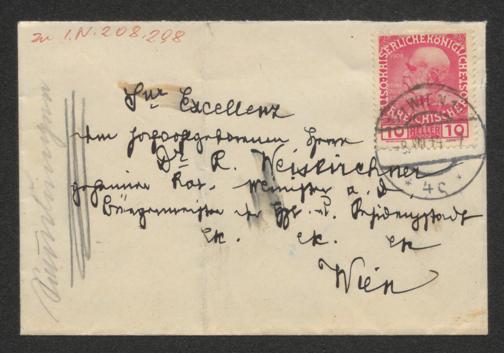 zu I.N. 208.298
Sr Excellenz
dem hochwohlgeborenen Herrn
Dr. R. Weiskirchner
geheimer Rat, Minister a. D.
Bürgermeister der Hpt. u. Residenzstadt
etc. etc. etc
Wien
KAISERLICHE KÖNIGLICHE
ÖSTERREICHISCHE
10 HELLER 10
WIEN
4c